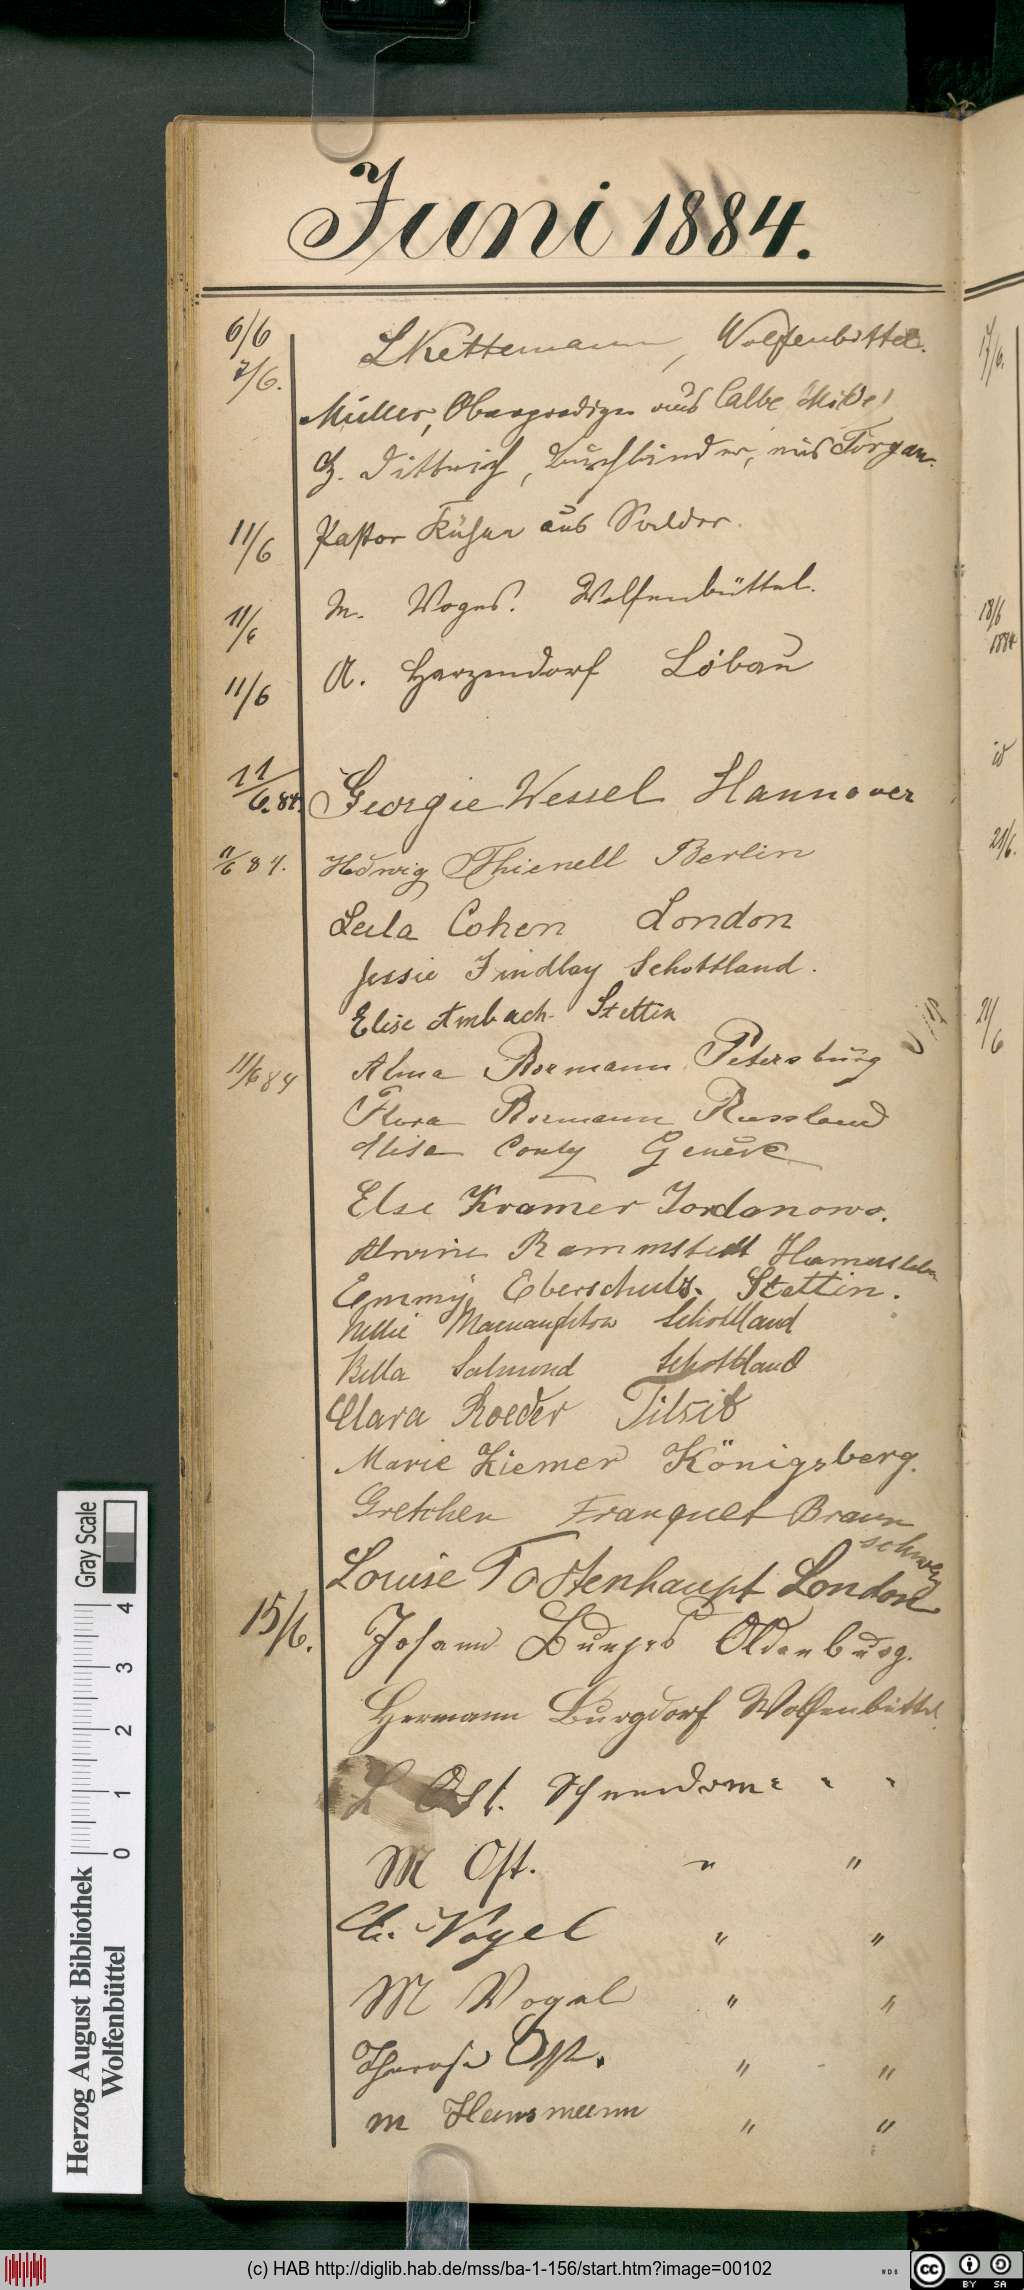 Juni 1884.
6/6 L Kettemann, Wolfenbüttel.
7/6.
Müller, Oberprediger aus Calbe Milde
G. Dittrich, Buchbinder, aus Torgau.
11/6 Pastor Kühne aus Salder.
11/6 M. Voges. Wolfenbüttel.
11/6 A. Herzendorf Löbau
11/6.84. Georgie Wessel Hannover
11/6 84. Hedwig Thienell Berlin
Leila Cohen London
Jessie Findlay Schottland.
Elise Ambach Stettin
11/6 84 Alma Bormann Petersburg
Flora Bormann Russland
Alisa Conty Genève
Else Kramer Jordanowo.
Alwine Rammstedt Hamersleben
Emmy Eberschulz. Stettin.
Nellie Macnaughton Schottland
Bella Salmond Schottland
Clara Roeder Tilsit
Marie Ziemer Königsberg.
Gretchen Franquet Braun
schweig
Louise Todtenhaupt London
15/6. Johann Oldenburg.
Hermann Burgdorf Wolfenbüttel
L Ost. " "
M Ost. " "
Vogel " "
M Vogel " "
Therese Ost. " "
M Hansmann " "
17/6.
18/6
1884
id
21/6.
21/6
Gray Scale
0 1 2 3 4
Herzog August Bibliothek
Wolfenbüttel
(c) HAB http://diglib.hab.de/mss/ba-1-156/start.htm?image=00102
WDB
cc BY SA